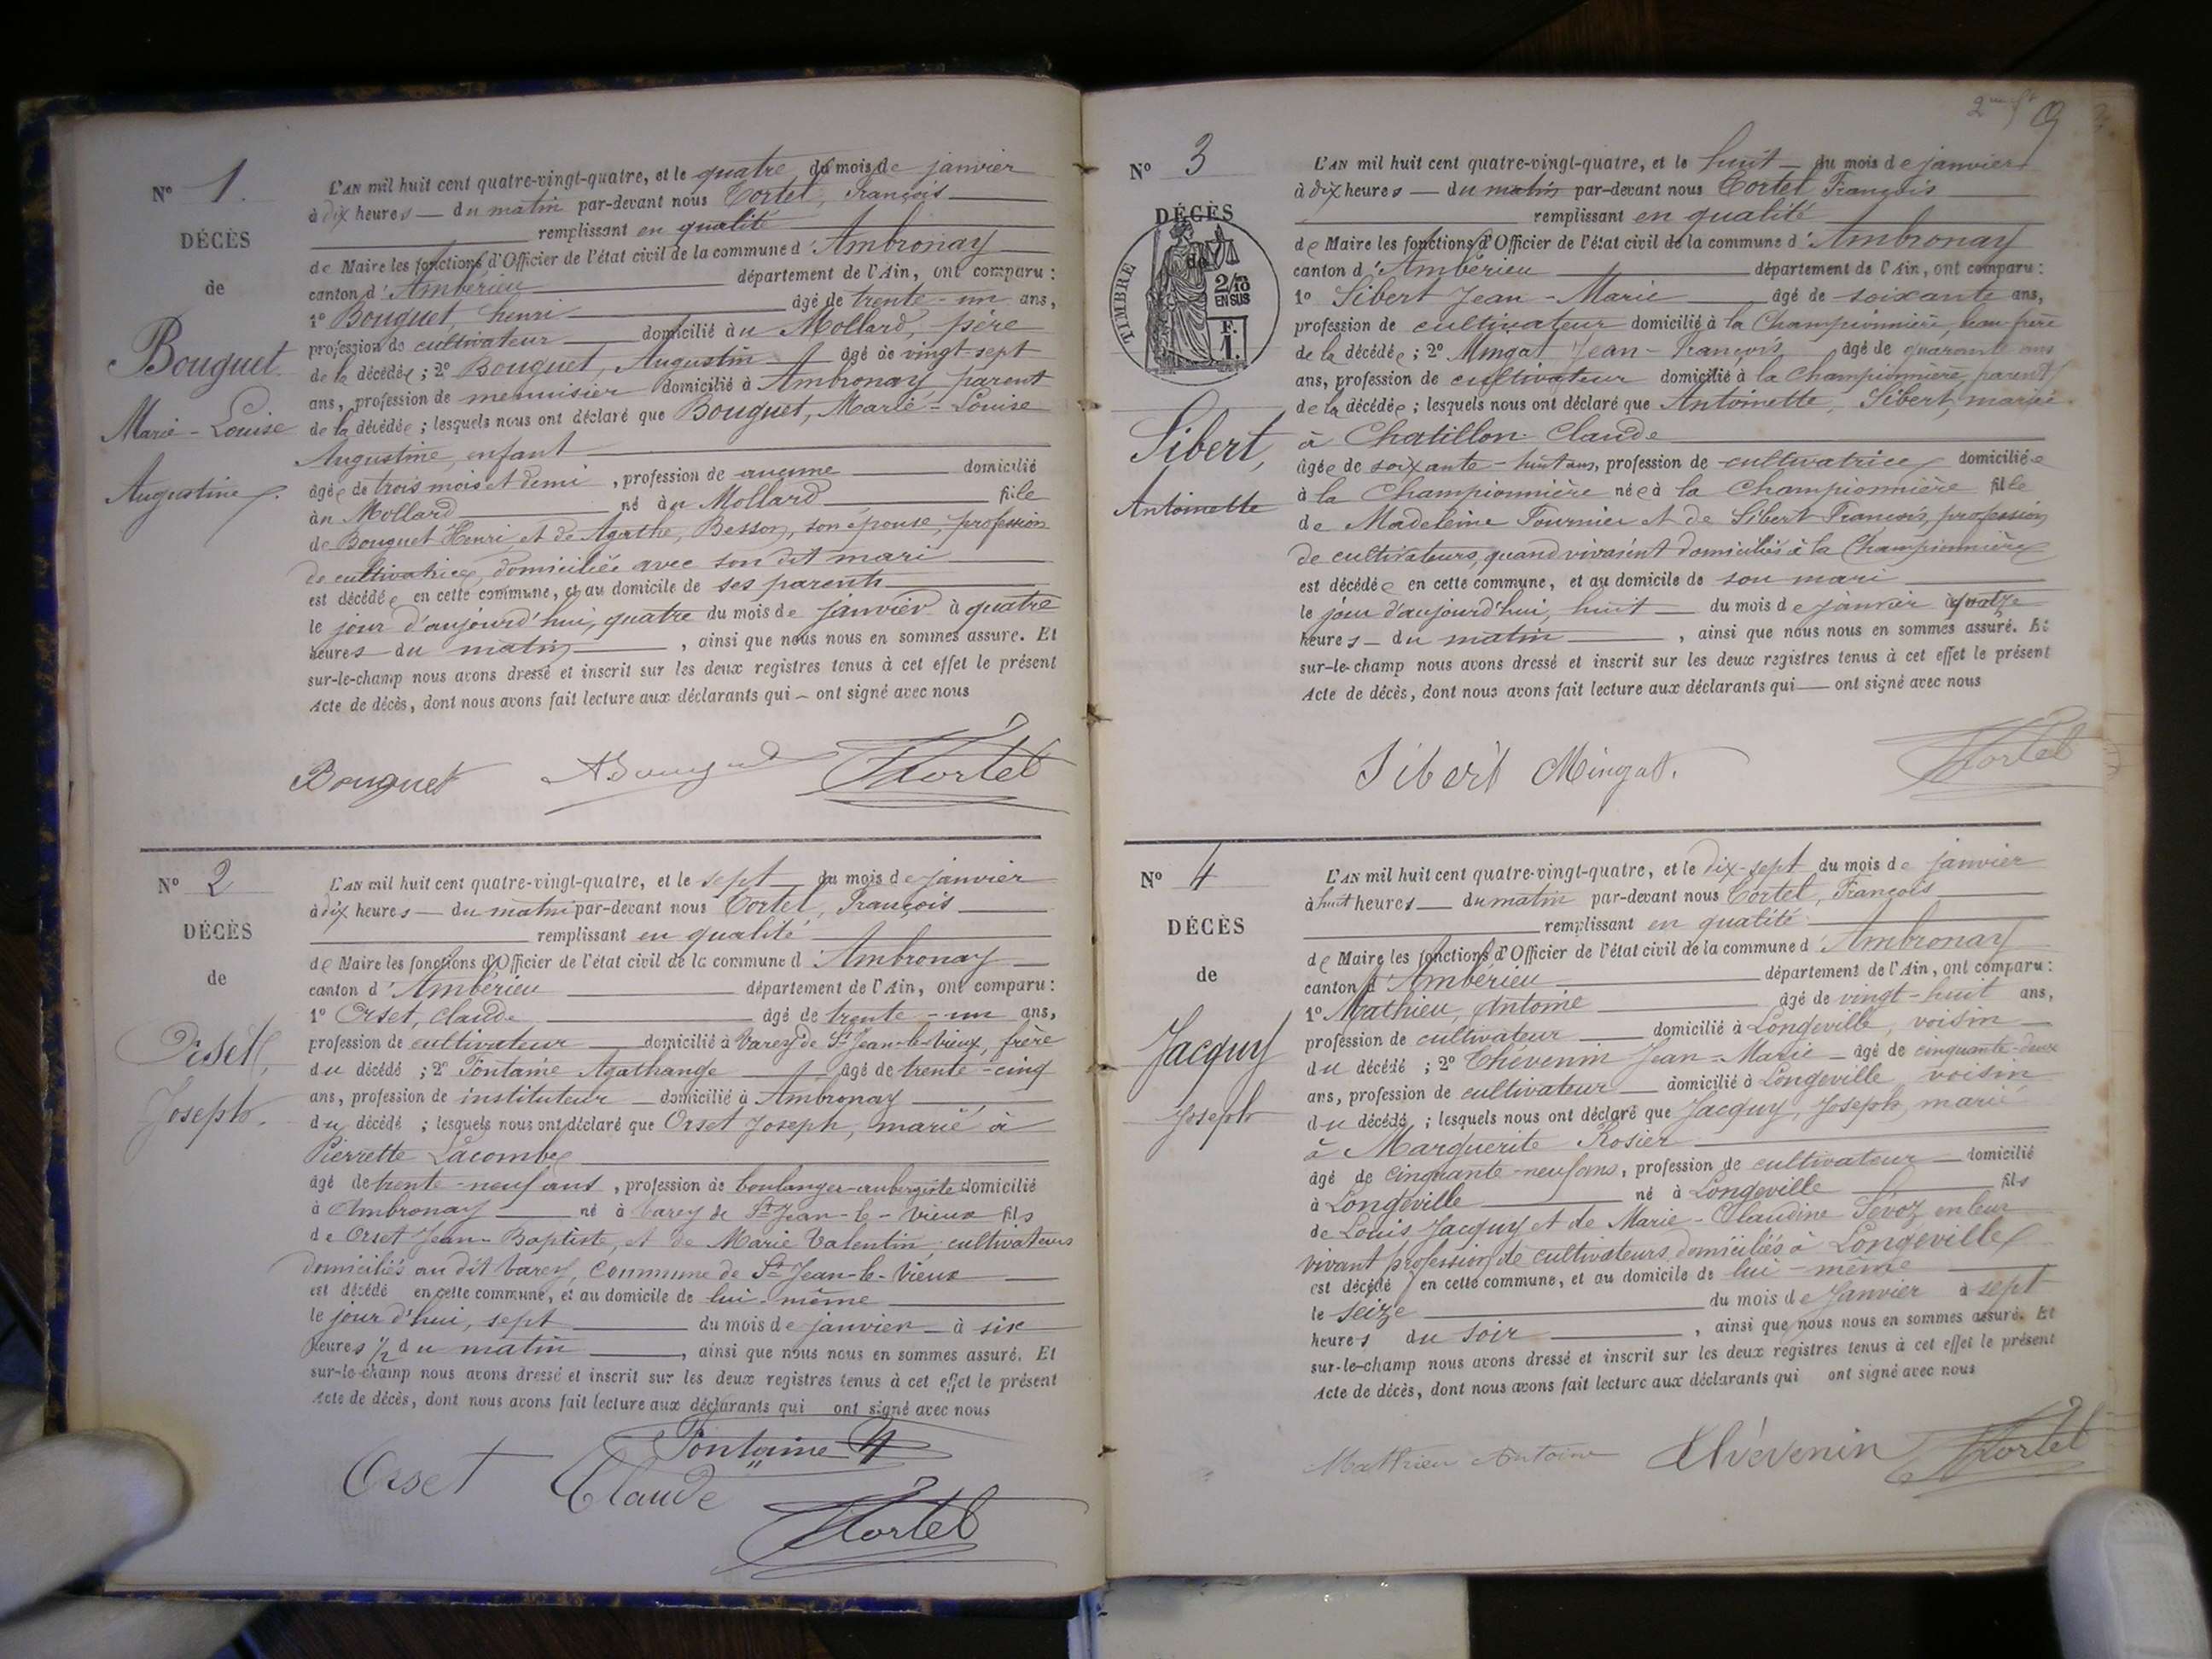 N° 1.
DÉCÈS
de
Bouguet
Marie-Louise
Augustine
L'AN mil huit cent quatre-vingt-quatre, et le quatre du mois de janvier
à dix heures — du matin par-devant nous Tortel, François
remplissant en qualité
de Maire les fonctions d'Officier de l'état civil de la commune d'Ambronay
canton d'Ambérieu département de l'Ain, ont comparu :
1° Bouguet, henri âgé de trente-un ans,
profession de cultivateur domicilié au Mollard, père
de la décédée ; 2° Bouguet, Augustin âgé de vingt-sept
ans, profession de menuisier domicilié à Ambronay parent
de la décédée ; lesquels nous ont déclaré que Bouguet, Marie-Louise
Augustine, enfant
âgée de trois mois et demi , profession de aucune domicilié
au Mollard né au Mollard fille
de Bouguet Henri, et de Agathe, Besson, son épouse, profession
de cultivatrice, domiciliée avec son dit mari
est décédée en cette commune, et au domicile de ses parents
le jour d'aujourd'hui, quatre du mois de janvier à quatre
heures du matin , ainsi que nous nous en sommes assuré. Et
sur-le-champ nous avons dressé et inscrit sur les deux registres tenus à cet effet le présent
Acte de décès, dont nous avons fait lecture aux déclarants qui — ont signé avec nous
Bouguet ABouguet FTortel
N° 2
DÉCÈS
de
Orset,
Joseph.
L'AN mil huit cent quatre-vingt-quatre, et le sept du mois de janvier
à dix heures — du matin par-devant nous Tortel, François
remplissant en qualité
de Maire les fonctions d'Officier de l'état civil de la commune d'Ambronay
canton d'Ambérieu département de l'Ain, ont comparu :
1° Orset, claude âgé de trente-un ans,
profession de cultivateur domicilié à Varey de St Jean-le-Vieux, frère
du décédé ; 2° Fontaine Agathange âgé de trente-cinq
ans, profession de instituteur domicilié à Ambronay
du décédé ; lesquels nous ont déclaré que Orset Joseph, marié à
Pierrette Lacombe
âgé de trente-neuf ans , profession de boulanger-aubergiste domicilié
à Ambronay né à Varey de St Jean-le-Vieux fils
de Orset Jean-Baptiste, et de Marie Valentin, cultivateurs
domiciliés au dit Varey, Commune de St Jean-le-Vieux
est décédé en cette commune, et au domicile de lui-même
le jour d'hui, sept du mois de janvier à six
heures ½ du matin , ainsi que nous nous en sommes assuré. Et
sur-le-champ nous avons dressé et inscrit sur les deux registres tenus à cet effet le présent
Acte de décès, dont nous avons fait lecture aux déclarants qui ont signé avec nous
Fontaine A
Orset Claude
FTortel
2 9
N° 3
DÉCÈS
de
TIMBRE
2/10
EN SUS
F.
1.
Sibert,
Antoinette
L'AN mil huit cent quatre-vingt-quatre, et le huit — du mois de janvier
à dix heures — du matin par-devant nous Tortel François
remplissant en qualité
de Maire les fonctions d'Officier de l'état civil de la commune d'Ambronay
canton d'Ambérieu département de l'Ain, ont comparu :
1° Sibert Jean-Marie âgé de soixante ans,
profession de cultivateur domicilié à la Championnière, beau-frère
de la décédée ; 2° Mingat Jean-François âgé de quarante ans
ans, profession de cultivateur domicilié à la Championnière, parent
de la décédée ; lesquels nous ont déclaré que Antoinette, Sibert, mariée
à Chatillon Claude
âgée de soixante-huit ans, profession de cultivatrice domiciliée
à la Championnière née à la Championnière fille
de Madeleine Fournier et de Sibert François, profession
de cultivateurs, quand vivaient domiciliés à la Championnière
est décédée en cette commune, et au domicile de son mari
le jour d'aujourd'hui, huit du mois de janvier à quatre
heures — du matin , ainsi que nous nous en sommes assuré. Et
sur-le-champ nous avons dressé et inscrit sur les deux registres tenus à cet effet le présent
Acte de décès, dont nous avons fait lecture aux déclarants qui — ont signé avec nous
Sibert Mingat. FTortel
N° 4
DÉCÈS
de
Jacquy
Joseph
L'AN mil huit cent quatre-vingt-quatre, et le dix-sept du mois de janvier
à huit heures du matin par-devant nous Tortel, François
remplissant en qualité
de Maire les fonctions d'Officier de l'état civil de la commune d'Ambronay
canton d'Ambérieu département de l'Ain, ont comparu :
1° Mathieu, Antoine âgé de vingt-huit ans,
profession de cultivateur domicilié à Longeville, voisin
du décédé ; 2° Thévenin Jean-Marie âgé de cinquante-deux
ans, profession de cultivateur domicilié à Longeville voisin
du décédé ; lesquels nous ont déclaré que Jacquy, Joseph, marié
à Marguerite Rosier
âgé de cinquante-neuf ans, profession de cultivateur domicilié
à Longeville né à Longeville fils
de Louis Jacquy et de Marie-Claudine Sévoz en leur
vivant profession de cultivateurs domiciliés à Longeville
est décédé en cette commune, et au domicile de lui-même
le seize du mois de Janvier à sept
heures du soir , ainsi que nous nous en sommes assuré. Et
sur-le-champ nous avons dressé et inscrit sur les deux registres tenus à cet effet le présent
Acte de décès, dont nous avons fait lecture aux déclarants qui ont signé avec nous
Mathieu Antoine Thévenin FTortel